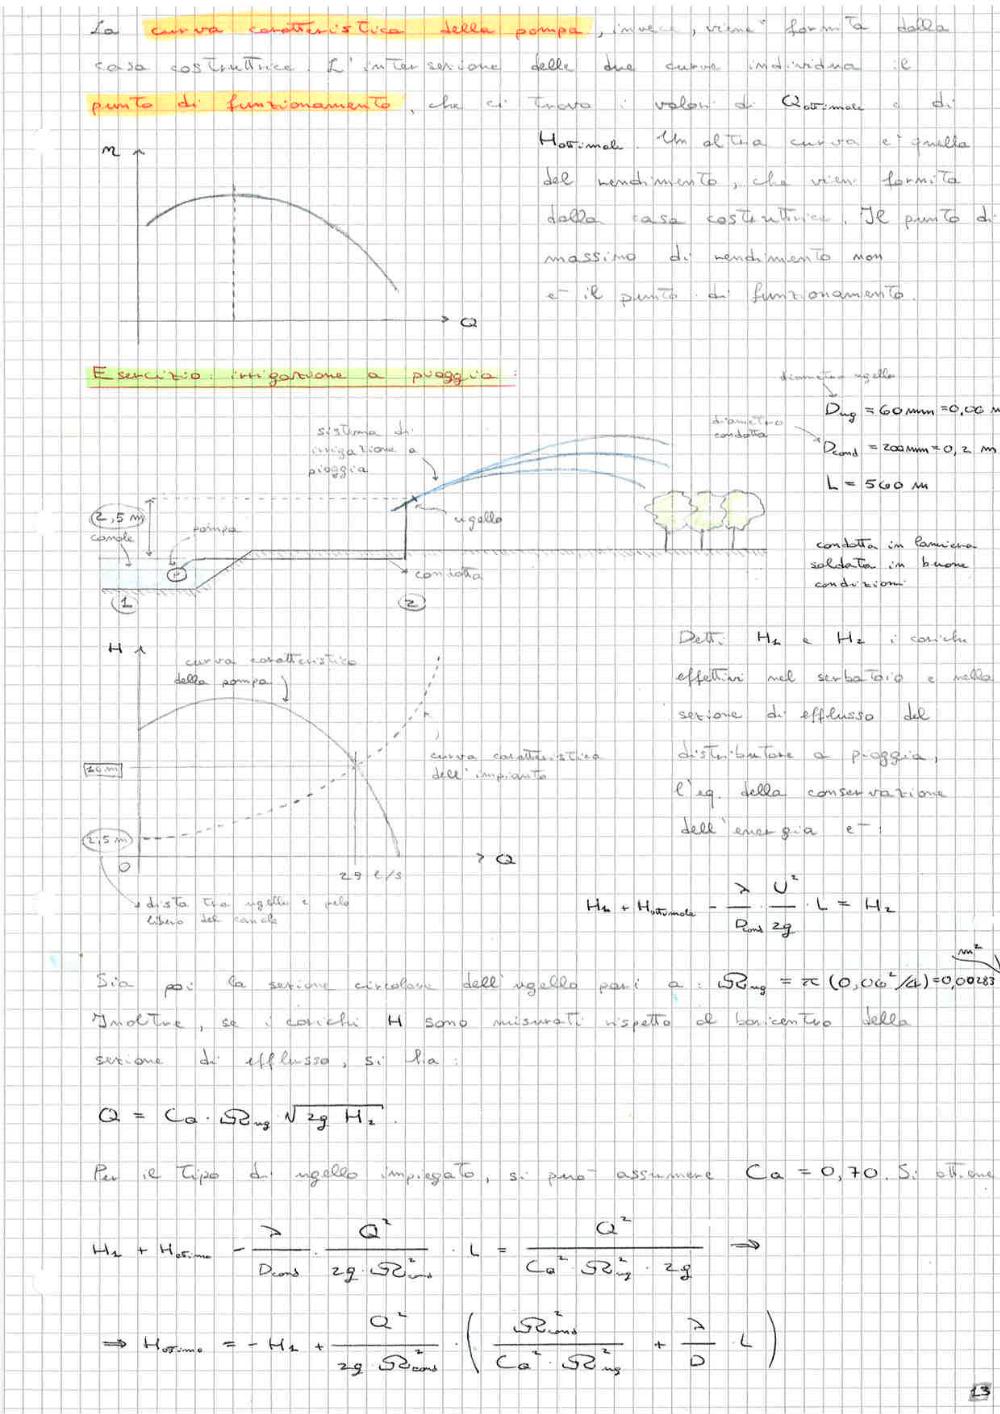 La curva caratteristica della pompa, invece, viene fornita dalla
casa costruttrice. L'intersezione delle due curve individua il
punto di funzionamento, che ci trova i valori di Qottimale e di
Hottimale. Un altra curva e' quella
del rendimento, che viene fornita
dalla casa costruttrice. Il punto di
massimo di rendimento non
e- il punto di funzionamento.
η
Q
Esercizio: irrigazione a pioggia:
diametro ugello
Dug = 60mm = 0,06 m
diametro
condotta
Dcond = 200mm = 0,2 m
L = 560 m
sistema di
irrigazione a
pioggia
2,5 m
canale
pompa
P
ugello
condotta
condotta in lamiera
saldata in buone
condizioni
1
2
H
curva caratteristica
della pompa
curva caratteristica
dell'impianto
2,5 m
0
29 l/s
Q
dista tra ugello e pelo
libero del canale
Detti H1 e H2 i carichi
effettivi nel serbatoio e nella
sezione di efflusso del
distributore a pioggia,
l'eq. della conservazione
dell'energia e-:
H1 + Hottimale - λ/Dcond · U²/2g · L = H2
Sia poi la sezione circolare dell'ugello pari a: Ωug = π (0,06²/4) = 0,00283 m²
Inoltre, se i carichi H sono misurati rispetto al baricentro della
sezione di efflusso, si ha:
Q = CQ · Ωug √2g H2.
Per il tipo di ugello impiegato, si puo' assumere CQ = 0,70. Si ottiene
H1 + Hottimo - λ/Dcond · Q²/2g · Ω²cond · L = Q²/CQ² · Ω²ug · 2g ⇒
⇒ Hottimo = - H1 + Q²/2g · Ω²cond · ( Ω²cond/CQ² · Ω²ug + λ/D L )
13